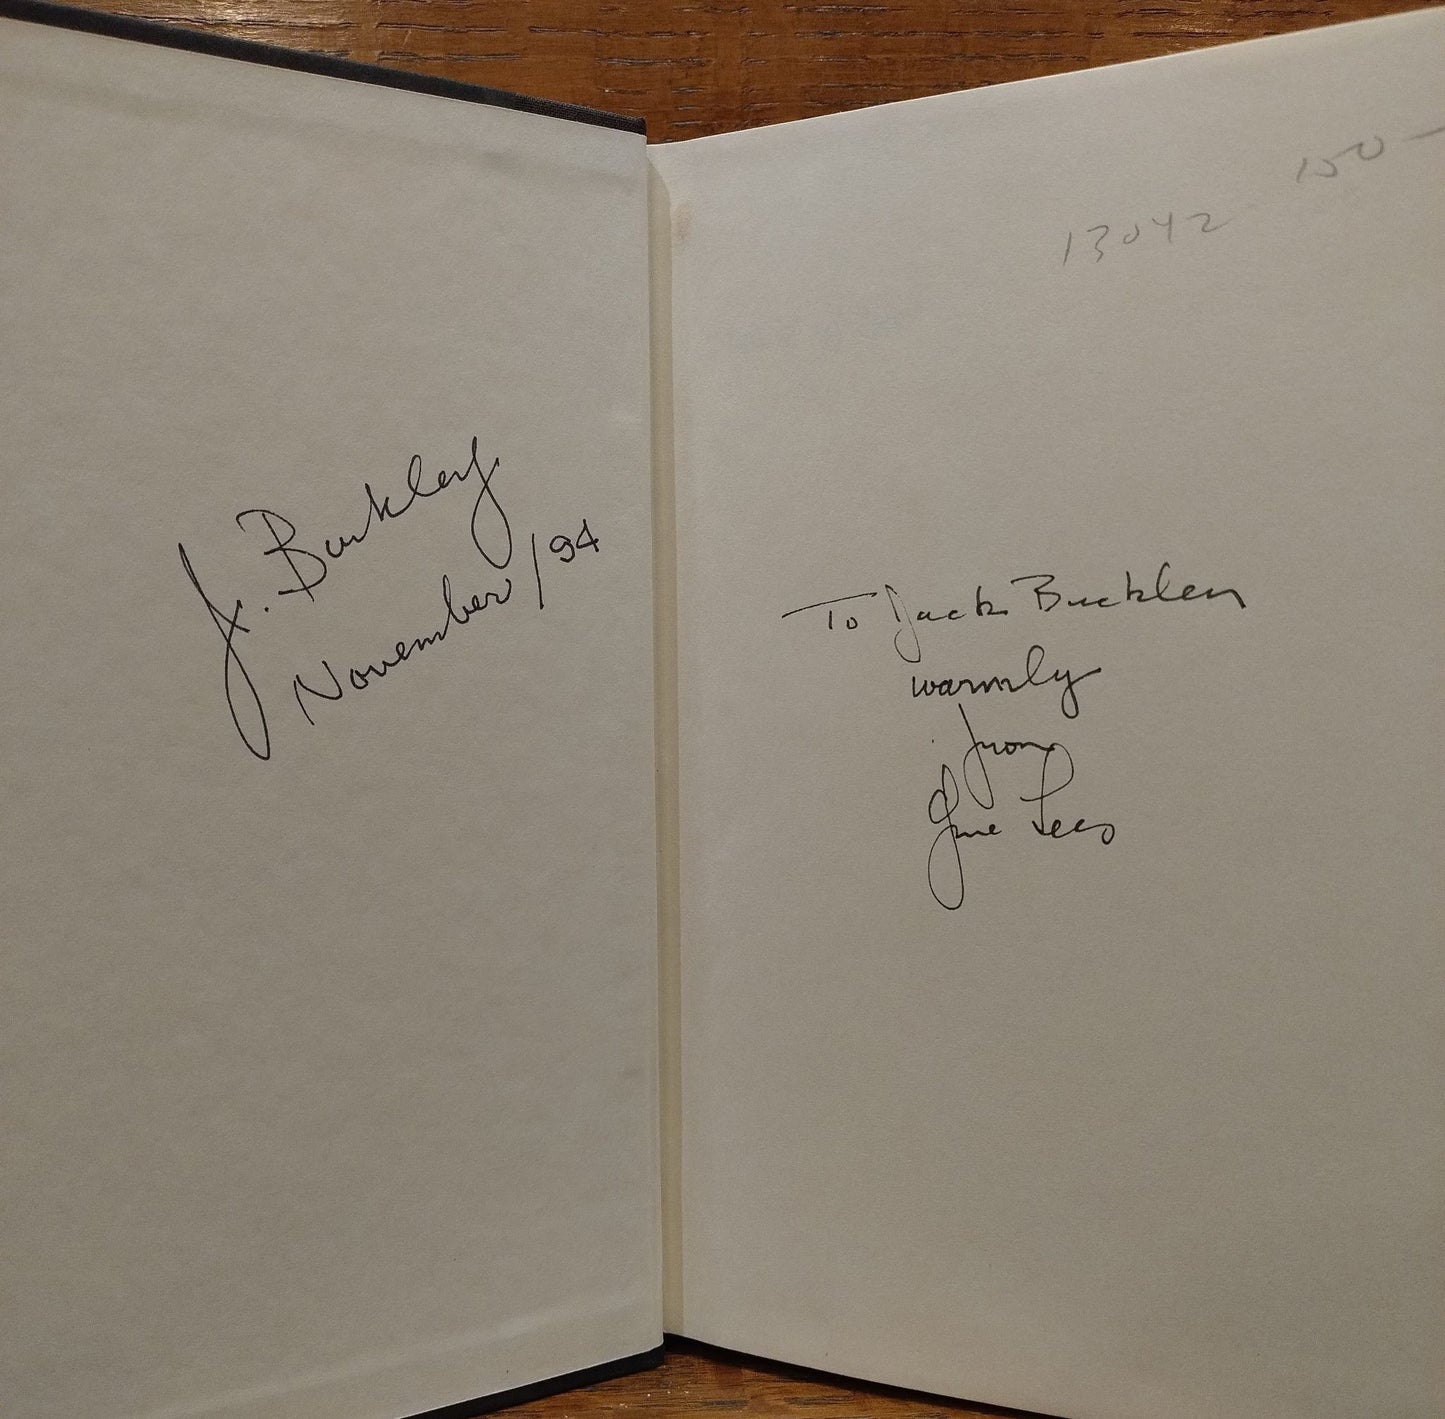 J. Buckley
November/94
150-
13042
To Jack Buckley
warmly
from
Gene Lees